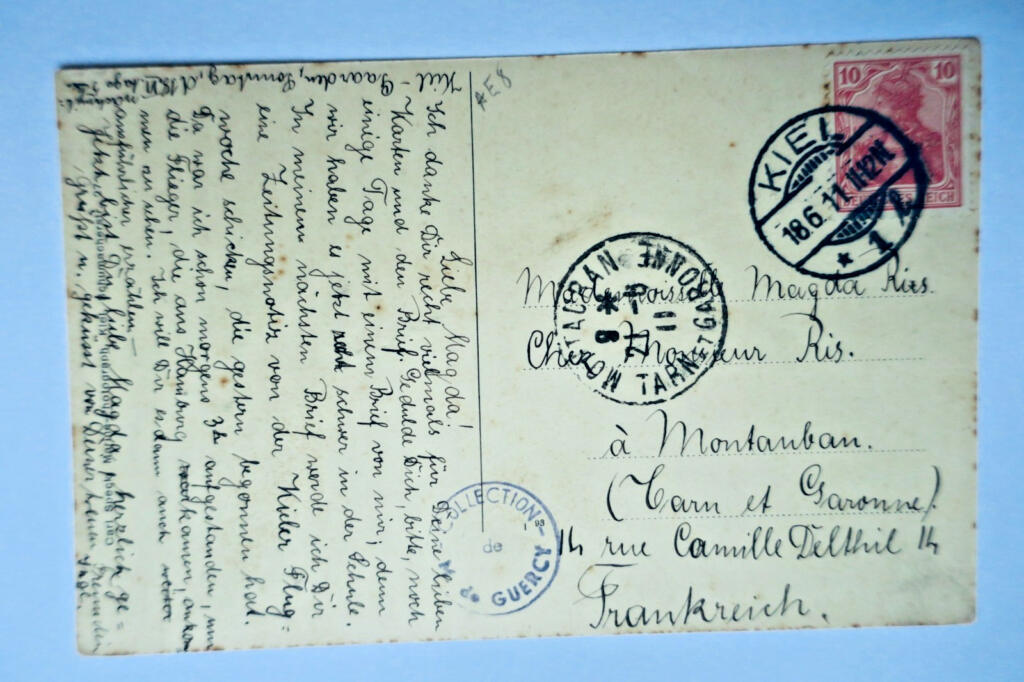 Kiel - Gaarden, Sonntag, d. 18. VI.
Liebe Magda!
Ich danke Dir recht vielmals für Deine lieben
Karten und den Brief. Gedulde Dich, bitte, noch
einige Tage mit einem Brief von mir, denn
wir haben es jetzt schwer in der Schule.
In meinem nächsten Brief werde ich Dir
eine Zeitungsnotiz von der Kieler Flug=
woche schicken, die gestern begonnen hat.
Da war ich schon morgens 3h aufgestanden, um
die Flieger, die aus Hamburg kamen, ankom
men zu sehen. Ich will Dir es dann auch
ausführlicher erzählen.
Jetzt bist Du, liebe Magda herzlich ge=
grüßt u. geküsst von Deiner treuen Freundin
*E8
10 10
KIEL
18.6.11.11-12N
* 1
MONTAUBAN
TARN-ET-GARONNE
11
Mademoiselle Magda Ris
Chez Monsieur Ris.
à Montauban.
(Tarn et Garonne).
14 rue Camille Delthil 14
Frankreich.
COLLECTION
de
GUERCY
93